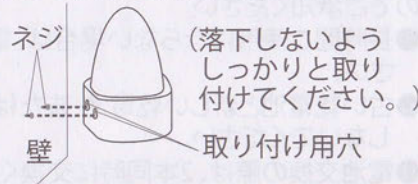 ネジ
(落下しないよう
しっかりと取り
付けてください。)
取り付け用穴
壁